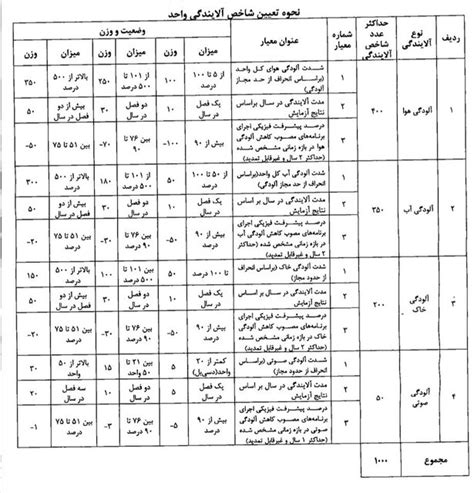 نحوه تعیین شاخص آلایندگی واحد
ردیف
نوع آلایندگی
حداکثر عدد شاخص آلایندگی
شماره معیار
عنوان معیار
وضعیت و وزن
میزان
وزن
میزان
وزن
میزان
وزن
۱
آلودگی هوا
۴۰۰
۱
شدت آلودگی هوای کل واحد (براساس انحراف از حد مجاز آلودگی)
از ۵ تا ۱۰۰ درصد
۱۰۰
از ۱۰۱ تا ۵۰۰ درصد
۲۵۰
بالاتر از ۵۰۰ درصد
۳۵۰
۲
مدت آلایندگی در سال بر اساس نتایج آزمایش
یک فصل
۱۰
دو فصل در سال
۳۰
بیش از دو فصل در سال
۵۰
۳
درصد پیشرفت فیزیکی اجرای برنامه‌های مصوب کاهش آلودگی هوا در بازه زمانی مشخص شده (حداکثر ۲ سال و غیرقابل تمدید)
بیش از ۹۰ درصد
-۱۰۰
بین ۷۶ تا ۹۰ درصد
-۷۰
بین ۵۱ تا ۷۵ درصد
-۵۰
۲
آلودگی آب
۳۵۰
۱
شدت آلودگی آب کل واحد(براساس انحراف از حدود مجاز آلودگی)
از ۵ تا ۱۰۰ درصد
۵۰
از ۱۰۱ تا ۵۰۰ درصد
۱۸۰
بالاتر از ۵۰۰ درصد
۳۰۰
۲
مدت آلایندگی در سال بر اساس نتایج آزمایش
یک فصل
۱۰
دو فصل در سال
۳۰
بیش از دو فصل در سال
۵۰
۳
درصد پیشرفت فیزیکی اجرای برنامه‌های مصوب کاهش آلودگی آب در بازه زمانی مشخص شده (حداکثر ۲ سال و غیرقابل تمدید)
بیش از ۹۰ درصد
-۵۰
بین ۷۶ تا ۹۰ درصد
-۳۰
بین ۵۱ تا ۷۵ درصد
-۲۰
۳
آلودگی خاک
۲۰۰
۱
شدت آلودگی خاک (براساس انحراف از حدود مجاز)
تا ۱۰۰ درصد
۵۰
بین ۱۰۱ تا ۵۰۰ درصد
۱۰۰
بالاتر از ۵۰۰ درصد
۱۵۰
۲
مدت آلایندگی در سال بر اساس نتایج آزمایش
یک فصل
۱۰
دو فصل
۳۰
بیش از دو فصل در سال
۵۰
۳
درصد پیشرفت فیزیکی اجرای برنامه‌های مصوب کاهش آلودگی خاک در بازه زمانی مشخص شده (حداکثر ۲ سال و غیرقابل تمدید)
بیش از ۹۰ درصد
-۵۰
بین ۷۶ تا ۹۰ درصد
-۳۰
بین ۵۱ تا ۷۵ درصد
-۲۰
۴
آلودگی صوتی
۵۰
۱
شدت آلودگی صوتی (براساس انحراف از حدود مجاز)
کمتر از ۲۰ واحد(دسی‌بل)
۵
بین ۲۱ تا ۵۰ واحد
۱۵
بالاتر از ۵۰ واحد
۳۰
۲
مدت آلایندگی در سال بر اساس نتایج آزمایش
یک فصل
۵
دو فصل
۱۰
سه فصل در سال
۲۰
۳
درصد پیشرفت فیزیکی اجرای برنامه‌های مصوب کاهش آلودگی صوتی در بازه زمانی مشخص شده (حداکثر ۱ سال و غیرقابل تمدید)
بیش از ۹۰ درصد
-۵
بین ۷۶ تا ۹۰ درصد
-۳
بین ۵۱ تا ۷۵ درصد
-۱
مجموع
۱۰۰۰